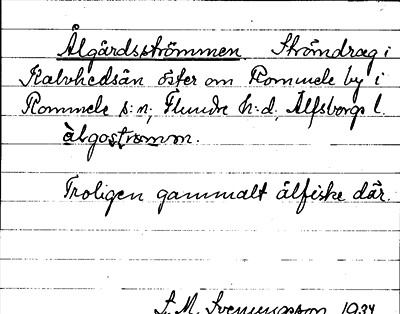 Ålgårdsströmmen. Strömdrag i
Kalvhedsån öster om Rommele by i
Rommele s:n, Flundre h:d, Älfsborgs l.
àlgostrømm.
Troligen gammalt ålfiske där.
S. M. Svenungsson 1934